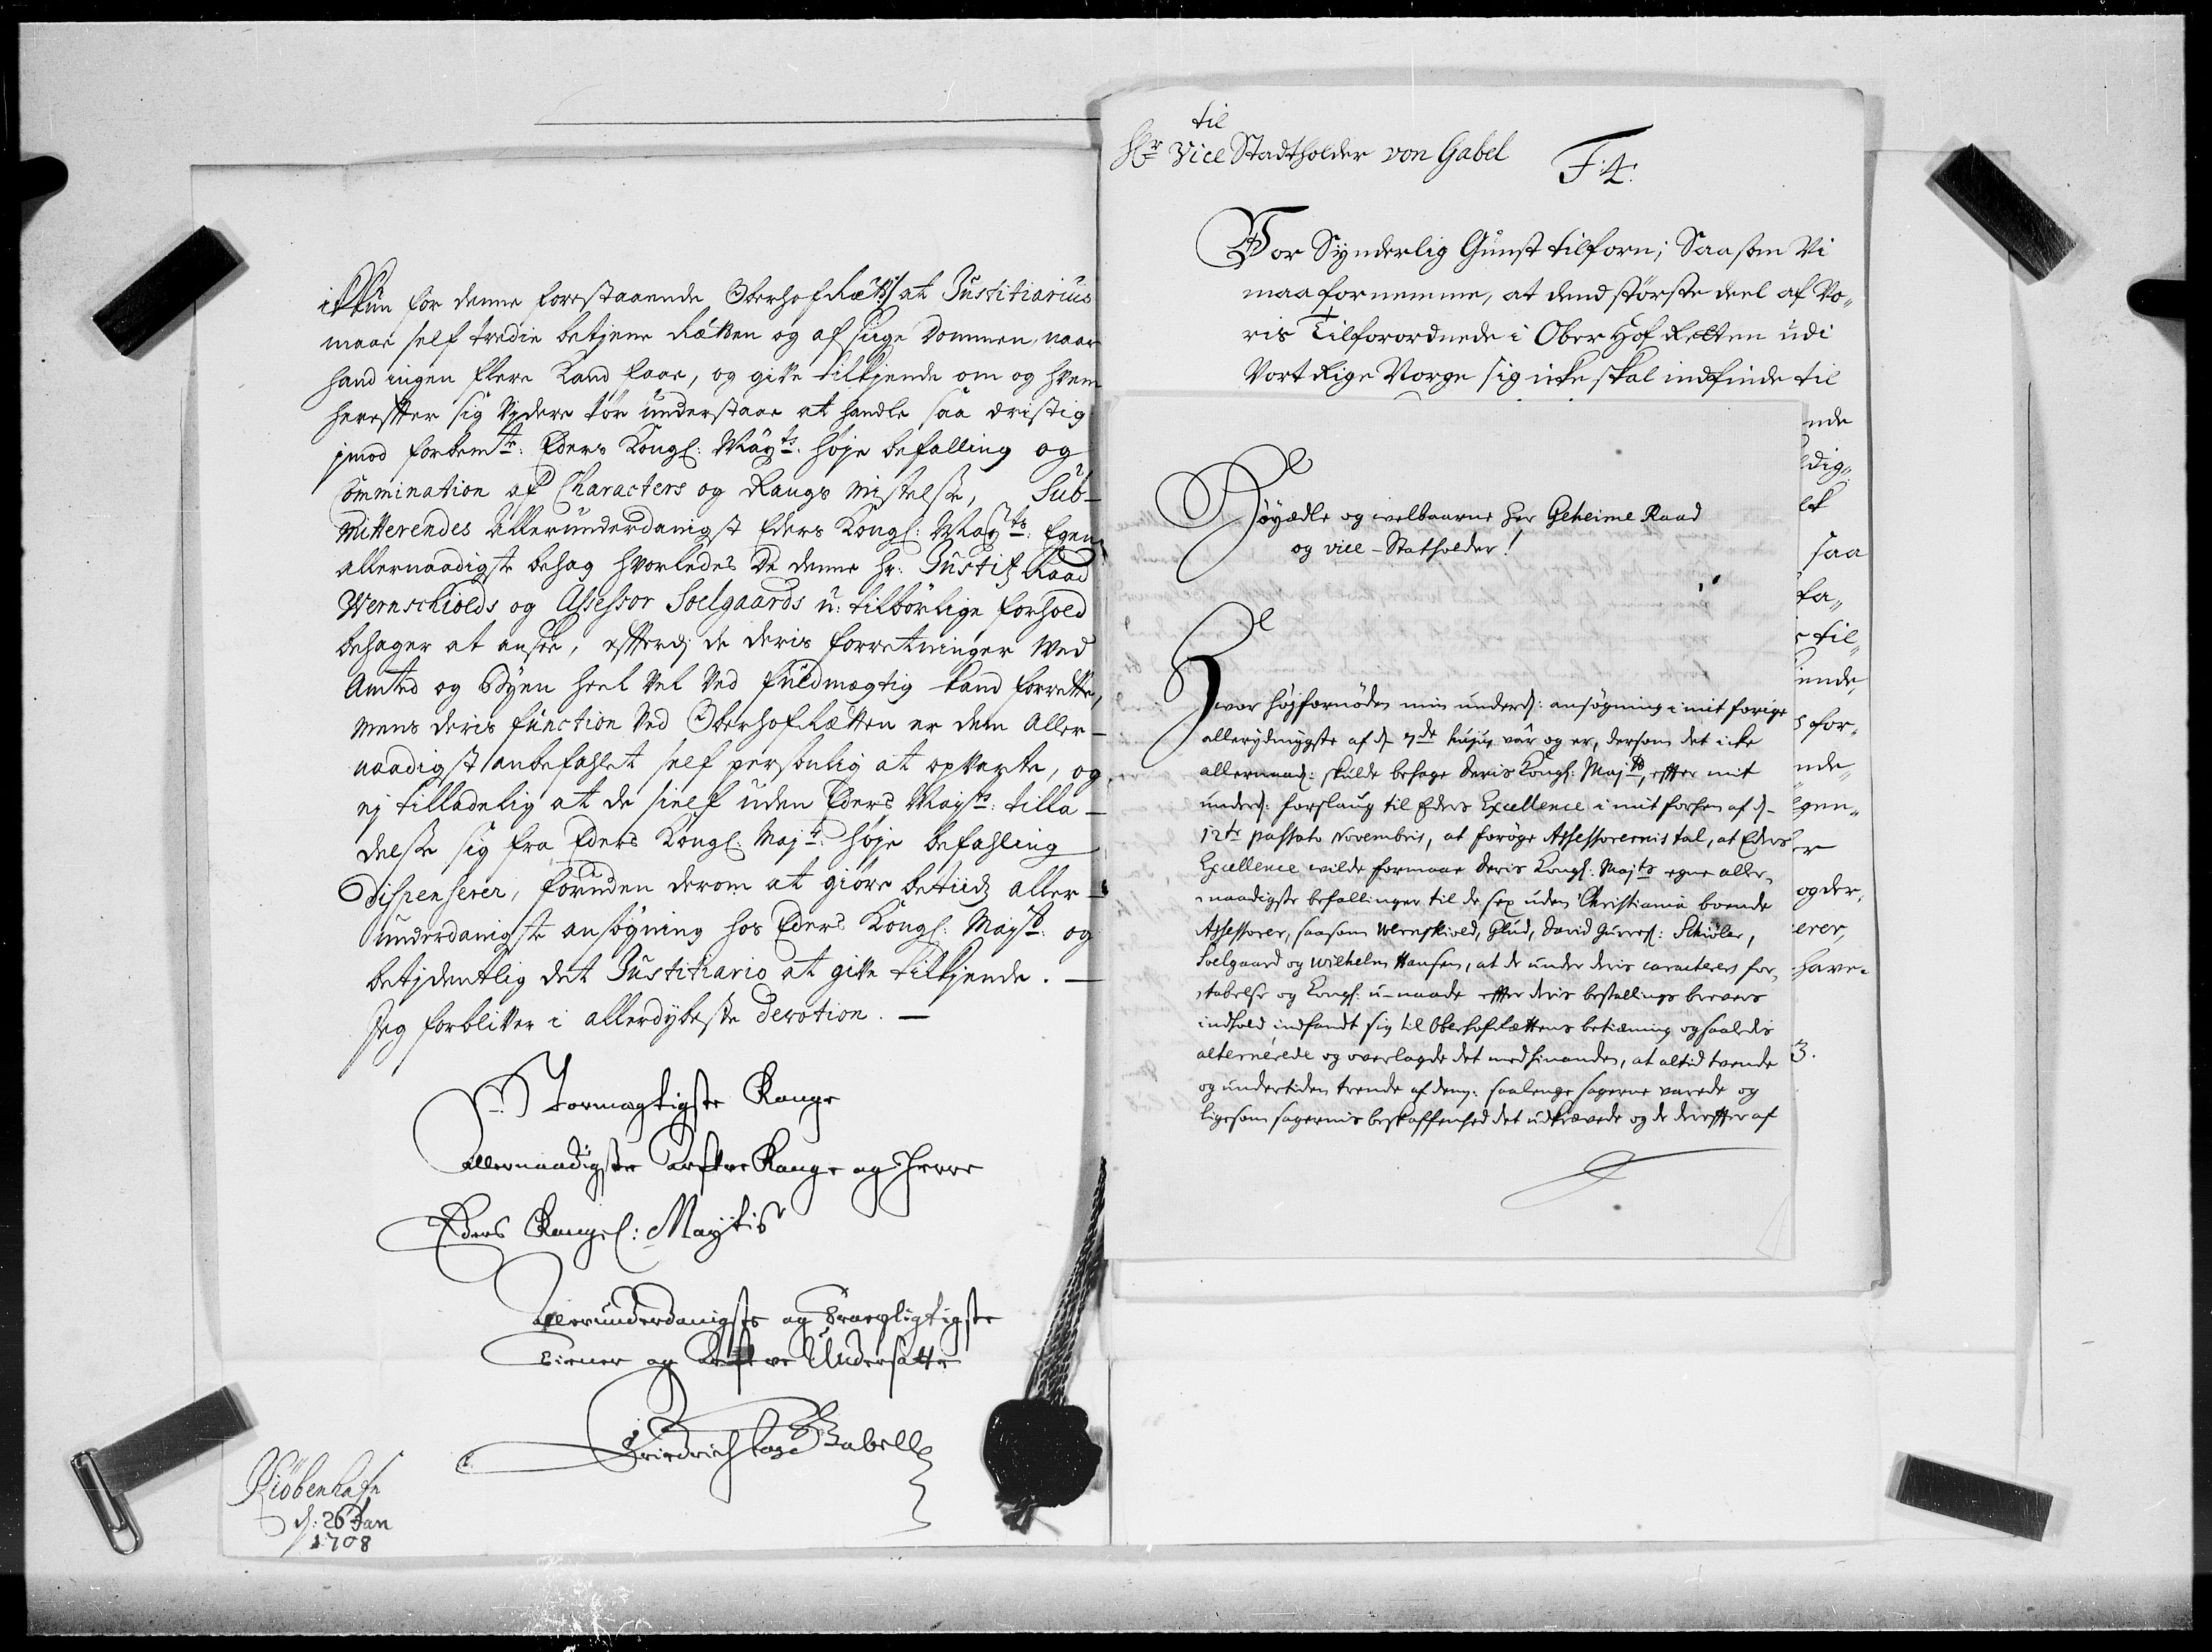 ikkun for denne forestaaende Oberhofræt at Justitiarius
maae self tredie betjene Rætten og afsige Dommen, naar
hand ingen flere Kand faae, og give tilkjende om og hvem
herefter sig Videre tør understaae at handle saa dristig
jmod forbemte: Eders Kongl: Mayts. høje befalling og
Commination af Characters og Rangs mistelse, Sub-
mitterendes allerunderdanigst Eders Kongl: Mayts: Egen
allernaadigste behag hvorledes De denne Hr: Justitz Raad
Wernschiolds og Assessor Soelgaards u-tilbørlige forhold
behager at ansee, efterdj de deris forretninger Ved
Amted og Byen heel Vel Ved fuldmægtig kand forrette,
mens deris function Ved OberhofRætten er dem Aller-
naadigst anbefahlet self personlig at opvarte, og
ej tilladelig at de sielf uden Eders Mayts: tilla-
delse sig fra Eders Kongl: Mayts: høje befahling
Dispenserer, foruden derom at giøre betiids aller-
underdanigste ansøgning hos Eders Kongl: Mayts: og
betjdentlig det Justitiario at give tilkjende. -
Jeg forbliver i allerdybeste Devotion. -
Stormægtigste Konge
Allernaadigste Arfve Konge og Herre
Eders Kongel: Maytis
Allerunderdanigste og Troepligtigste
Tiener og Arfve Undersatte
Friedrich Gabell
Kiöbenhafn
d: 26 Jan
1708
til
Hr Vice Stadtholder von Gabel
F: 4.
Vor Synderlig Gunst tilforn; Saasom Vi
maa fornemme, at dend største deel af Vo„
ris Tilforordnede i Ober Hof Retten udi
Vort Rige Norge sig icke skal indfinde til
nde
dig„
ek
saa
fa„
til„
ende
for„
nde„
gen„
er
og der„
erer,
have.
3.
Høyædle og welbaarne Her Geheime Raad
og vice-Statholder!
Hvor højfornøden min underd: ansøgning i mit forige
allerydmygste af d 7de hujus vår og er, dersom det icke
allernaad: skulde behage Deris Kongl: Majts, efter mit
underd: forslaug til Eders Excellence i mit forhen af d-
12te passato Novembris, at forøge Assessorernis tal, at Eders
Excellence wilde formaae Deris Kongl: Majts egne aller„
naadigste befallinger til de sex uden Christiania boende
Assessorer, saasom Wernskiold, Glud, David Schiöler,
Soelgaard og Wilhelm Hansen, at de under deris caracteres for„
tabelse og Kongl: u-naade efter deris bestallings brevers
indhold indfandt sig til Oberhofrættens betiening og saaledis
alternérede og overlagde det med hinanden, at altid tvende
og undertiden trende af dem: saalenge sagerne varede og
ligesom sagernis beskaffenhed det udkrævede og de derefter af